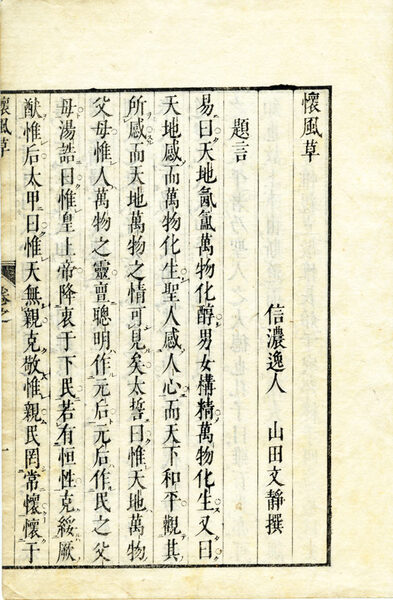 懷風草
信濃逸人　山田文靜撰
題言
易曰天地氤氳萬物化醇男女構精萬物化生又曰
天地感而萬物化生聖人感人心而天下和平觀其
所感而天地萬物之情可見矣太誓曰惟天地萬物
父母惟人萬物之靈亶聰明作元后元后作民之父
母湯誥曰惟皇上帝降衷于下民若有恒性克綏厥
猷惟后太甲曰惟天無親克敬惟親民罔常懷懷于
懷風草